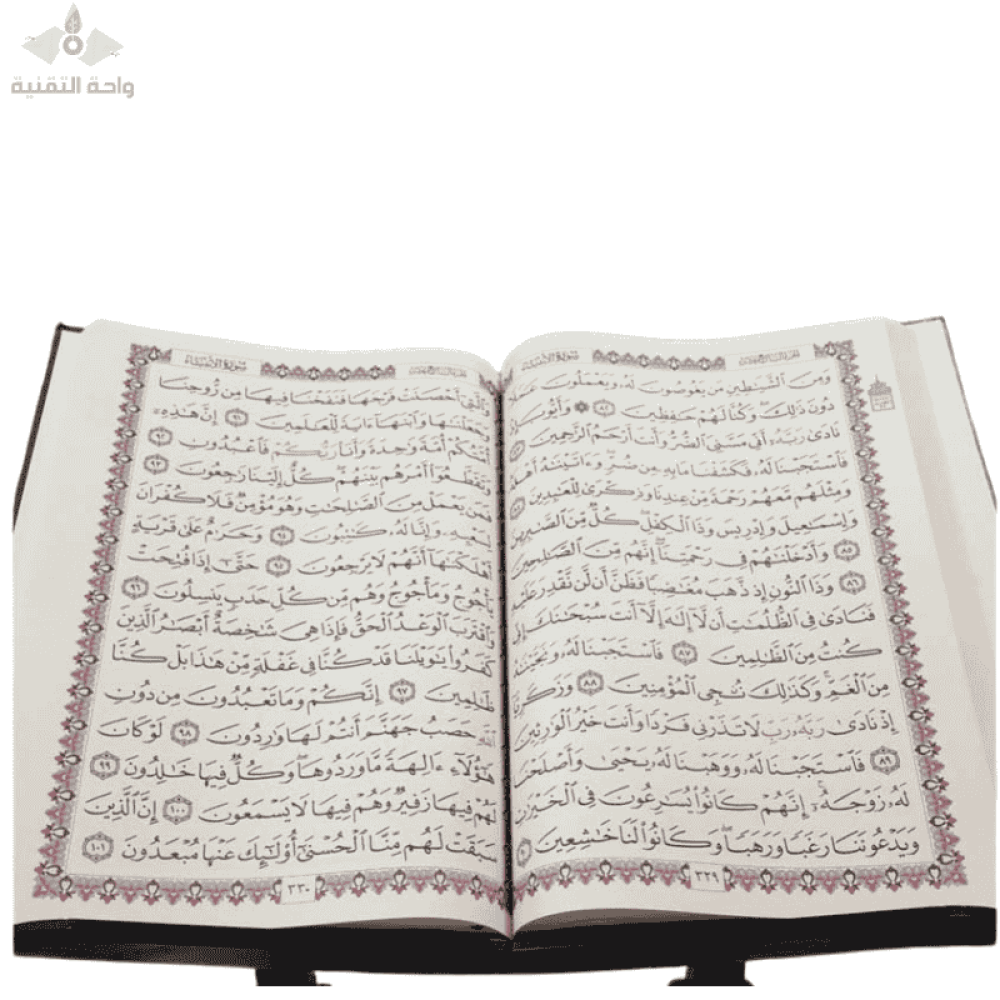 واحة التقنية
سورة الأنبياء
وَمِنَ ٱلشَّيَٰطِينِ مَن يَغُوصُونَ لَهُۥ وَيَعْمَلُونَ عَمَلًا
دُونَ ذَٰلِكَ ۖ وَكُنَّا لَهُمْ حَٰفِظِينَ ٨٢ ۞ وَأَيُّوبَ إِذْ
نَادَىٰ رَبَّهُۥٓ أَنِّى مَسَّنِىَ ٱلضُّرُّ وَأَنتَ أَرْحَمُ ٱلرَّٰحِمِينَ ٨٣
فَٱسْتَجَبْنَا لَهُۥ فَكَشَفْنَا مَا بِهِۦ مِن ضُرٍّ ۖ وَءَاتَيْنَٰهُ أَهْلَهُۥ
وَمِثْلَهُم مَّعَهُمْ رَحْمَةً مِّنْ عِندِنَا وَذِكْرَىٰ لِلْعَٰبِدِينَ ٨٤
وَإِسْمَٰعِيلَ وَإِدْرِيسَ وَذَا ٱلْكِفْلِ ۖ كُلٌّ مِّنَ ٱلصَّٰبِرِينَ
٨٥ وَأَدْخَلْنَٰهُمْ فِى رَحْمَتِنَآ ۖ إِنَّهُم مِّنَ ٱلصَّٰلِحِينَ
٨٦ وَذَا ٱلنُّونِ إِذ ذَّهَبَ مُغَٰضِبًا فَظَنَّ أَن لَّن نَّقْدِرَ عَلَيْهِ
فَنَادَىٰ فِى ٱلظُّلُمَٰتِ أَن لَّآ إِلَٰهَ إِلَّآ أَنتَ سُبْحَٰنَكَ إِنِّى
كُنتُ مِنَ ٱلظَّٰلِمِينَ ٨٧ فَٱسْتَجَبْنَا لَهُۥ وَنَجَّيْنَٰهُ
مِنَ ٱلْغَمِّ ۚ وَكَذَٰلِكَ نُۨجِى ٱلْمُؤْمِنِينَ ٨٨ وَزَكَرِيَّآ
إِذْ نَادَىٰ رَبَّهُۥ رَبِّ لَا تَذَرْنِى فَرْدًا وَأَنتَ خَيْرُ ٱلْوَٰرِثِينَ
٨٩ فَٱسْتَجَبْنَا لَهُۥ وَوَهَبْنَا لَهُۥ يَحْيَىٰ وَأَصْلَحْنَا
لَهُۥ زَوْجَهُۥٓ ۚ إِنَّهُمْ كَانُوا۟ يُسَٰرِعُونَ فِى ٱلْخَيْرَٰتِ
وَيَدْعُونَنَا رَغَبًا وَرَهَبًا ۖ وَكَانُوا۟ لَنَا خَٰشِعِينَ ٩٠
٣٢٩
سورة الأنبياء
وَٱلَّتِىٓ أَحْصَنَتْ فَرْجَهَا فَنَفَخْنَا فِيهَا مِن رُّوحِنَا
وَجَعَلْنَٰهَا وَٱبْنَهَآ ءَايَةً لِّلْعَٰلَمِينَ ٩١ إِنَّ هَٰذِهِۦٓ
أُمَّتُكُمْ أُمَّةً وَٰحِدَةً وَأَنَا۠ رَبُّكُمْ فَٱعْبُدُونِ ٩٢
وَتَقَطَّعُوٓا۟ أَمْرَهُم بَيْنَهُمْ ۖ كُلٌّ إِلَيْنَا رَٰجِعُونَ ٩٣
فَمَن يَعْمَلْ مِنَ ٱلصَّٰلِحَٰتِ وَهُوَ مُؤْمِنٌ فَلَا كُفْرَانَ
لِسَعْيِهِۦ وَإِنَّا لَهُۥ كَٰتِبُونَ ٩٤ وَحَرَٰمٌ عَلَىٰ قَرْيَةٍ
أَهْلَكْنَٰهَآ أَنَّهُمْ لَا يَرْجِعُونَ ٩٥ حَتَّىٰٓ إِذَا فُتِحَتْ
يَأْجُوجُ وَمَأْجُوجُ وَهُم مِّن كُلِّ حَدَبٍ يَنسِلُونَ ٩٦
وَٱقْتَرَبَ ٱلْوَعْدُ ٱلْحَقُّ فَإِذَا هِىَ شَٰخِصَةٌ أَبْصَٰرُ ٱلَّذِينَ
كَفَرُوا۟ يَٰوَيْلَنَا قَدْ كُنَّا فِى غَفْلَةٍ مِّنْ هَٰذَا بَلْ كُنَّا
ظَٰلِمِينَ ٩٧ إِنَّكُمْ وَمَا تَعْبُدُونَ مِن دُونِ
ٱللَّهِ حَصَبُ جَهَنَّمَ أَنتُمْ لَهَا وَٰرِدُونَ ٩٨ لَوْ كَانَ
هَٰٓؤُلَآءِ ءَالِهَةً مَّا وَرَدُوهَا ۖ وَكُلٌّ فِيهَا خَٰلِدُونَ ٩٩
لَهُمْ فِيهَا زَفِيرٌ وَهُمْ فِيهَا لَا يَسْمَعُونَ ١٠٠ إِنَّ ٱلَّذِينَ
سَبَقَتْ لَهُم مِّنَّا ٱلْحُسْنَىٰٓ أُو۟لَٰٓئِكَ عَنْهَا مُبْعَدُونَ ١٠١
٣٣٠